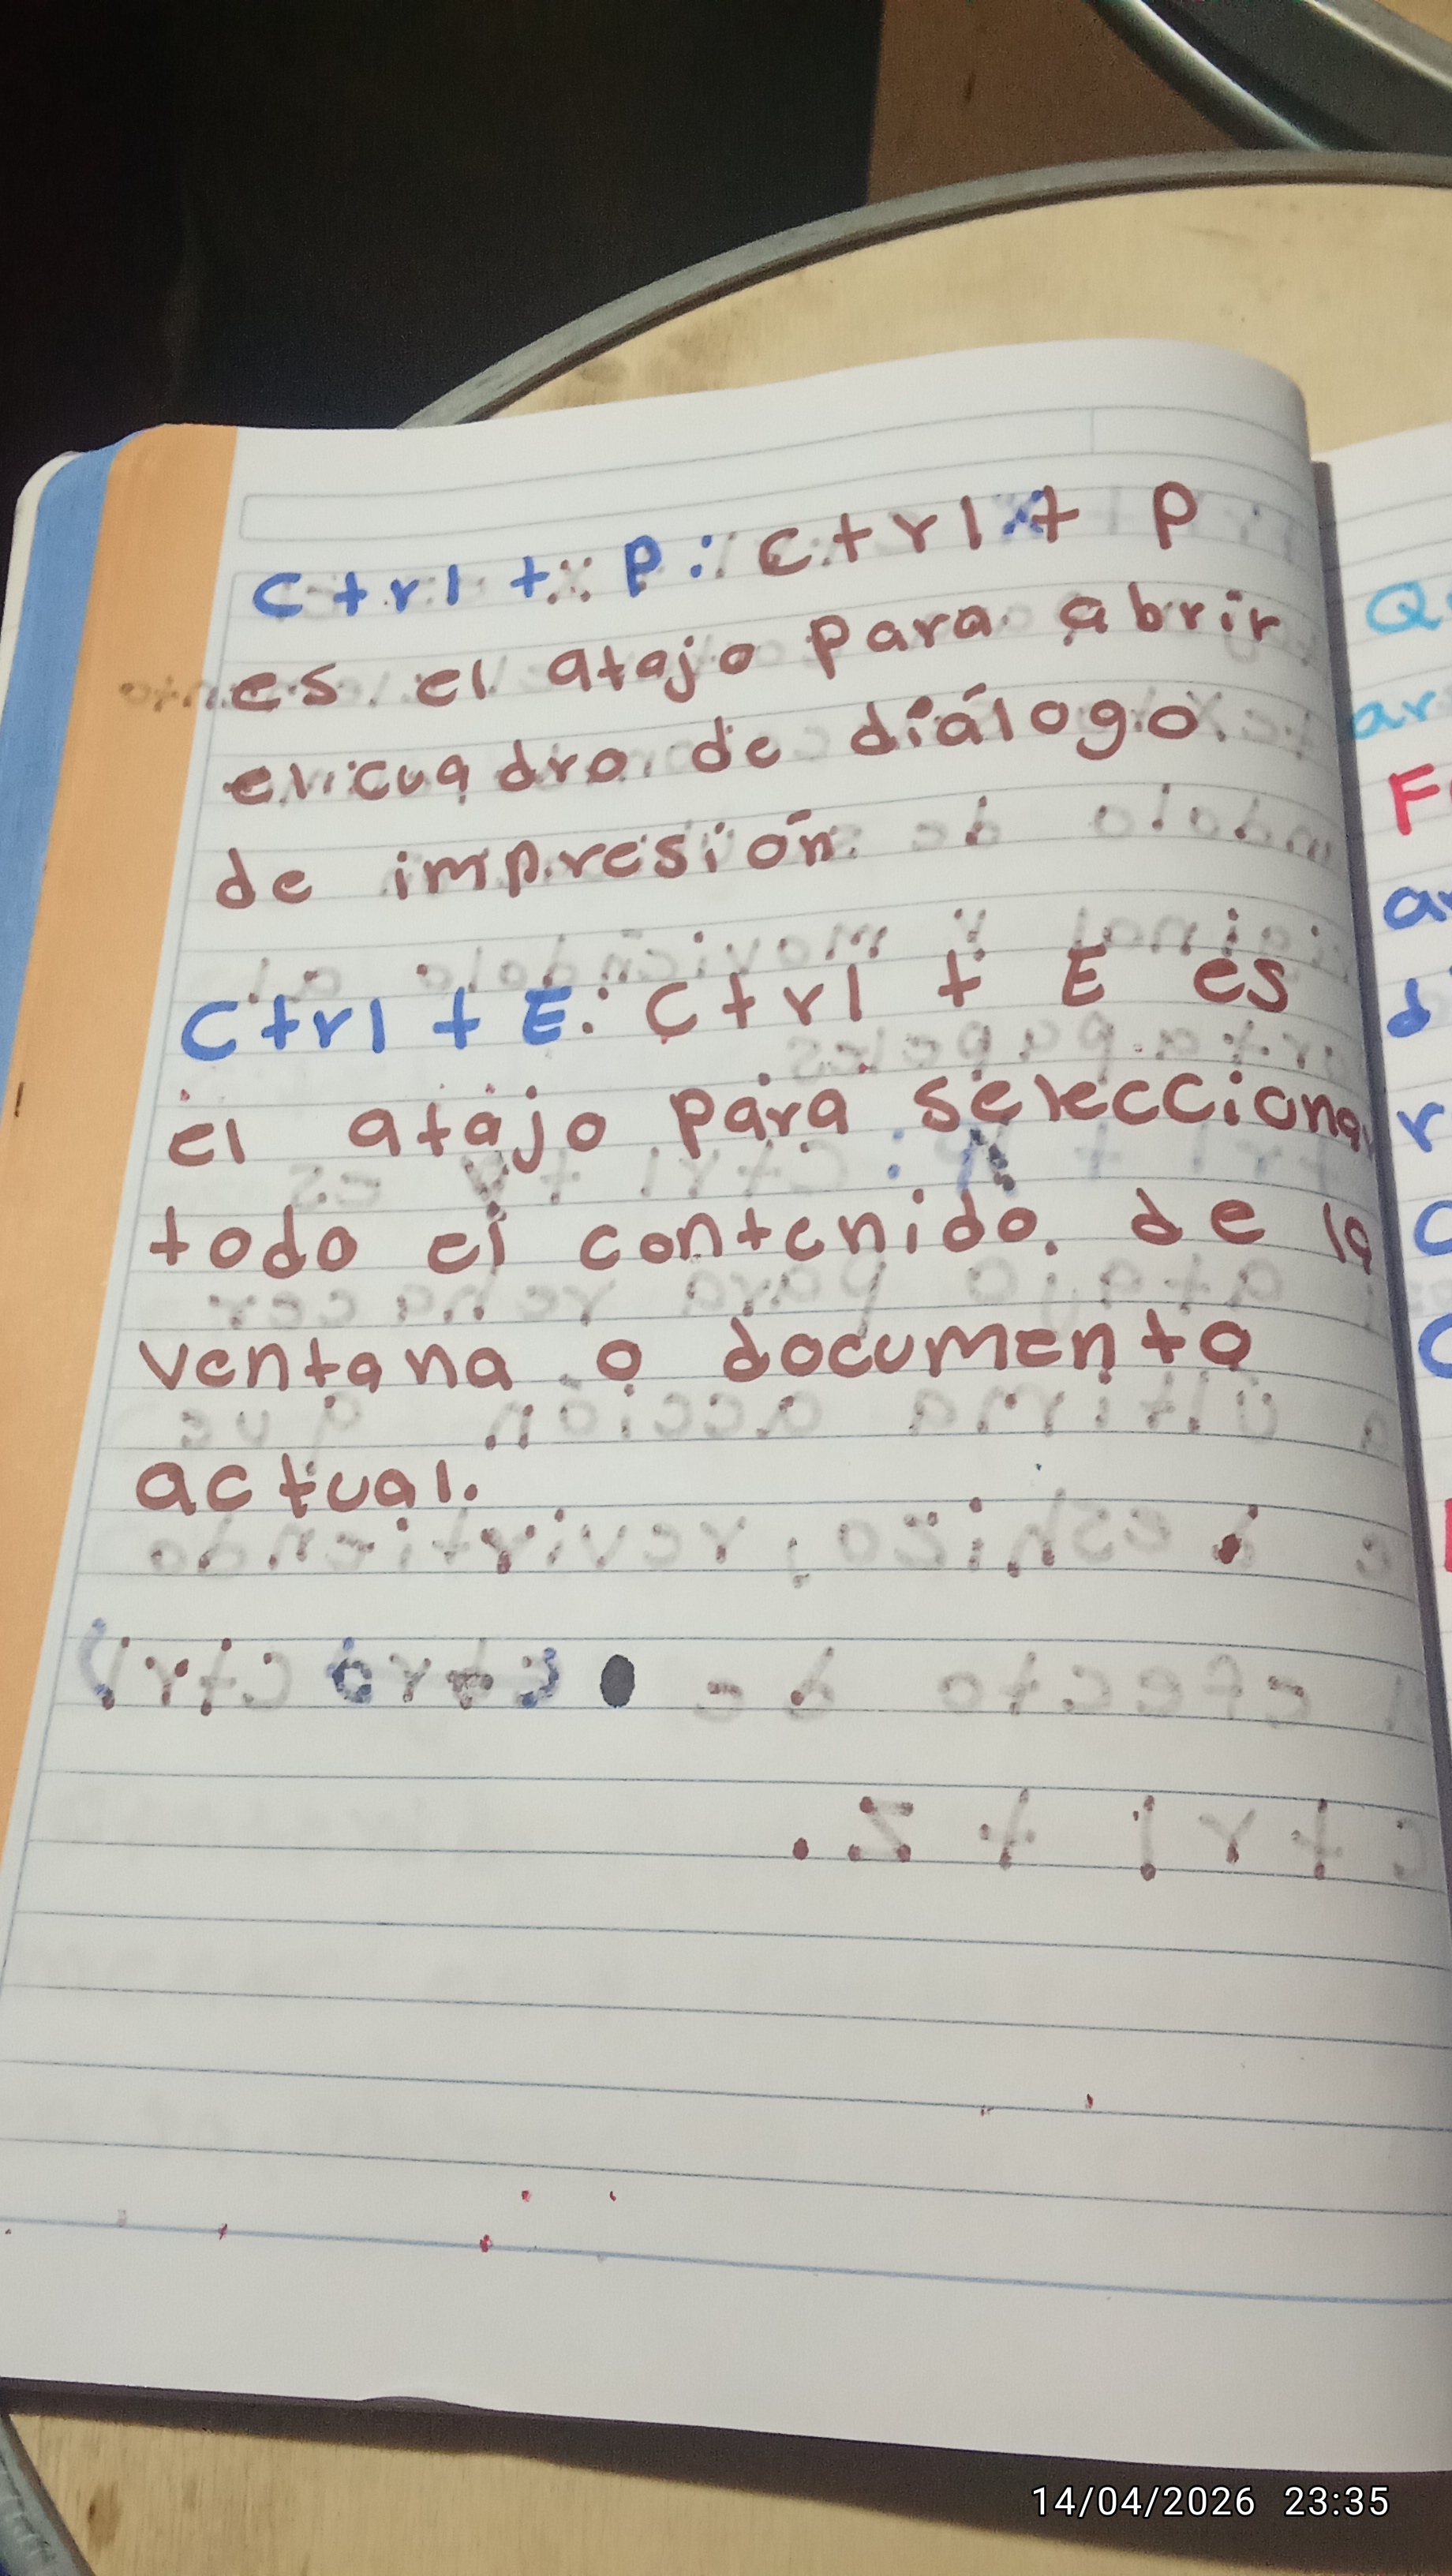 Ctrl + P: Ctrl + P
es el atajo para abrir
el cuadro de diálogo
de impresión
Ctrl + E: Ctrl + E es
el atajo para seleccionar
todo el contenido de la
ventana o documento
actual.
14/04/2026 23:35